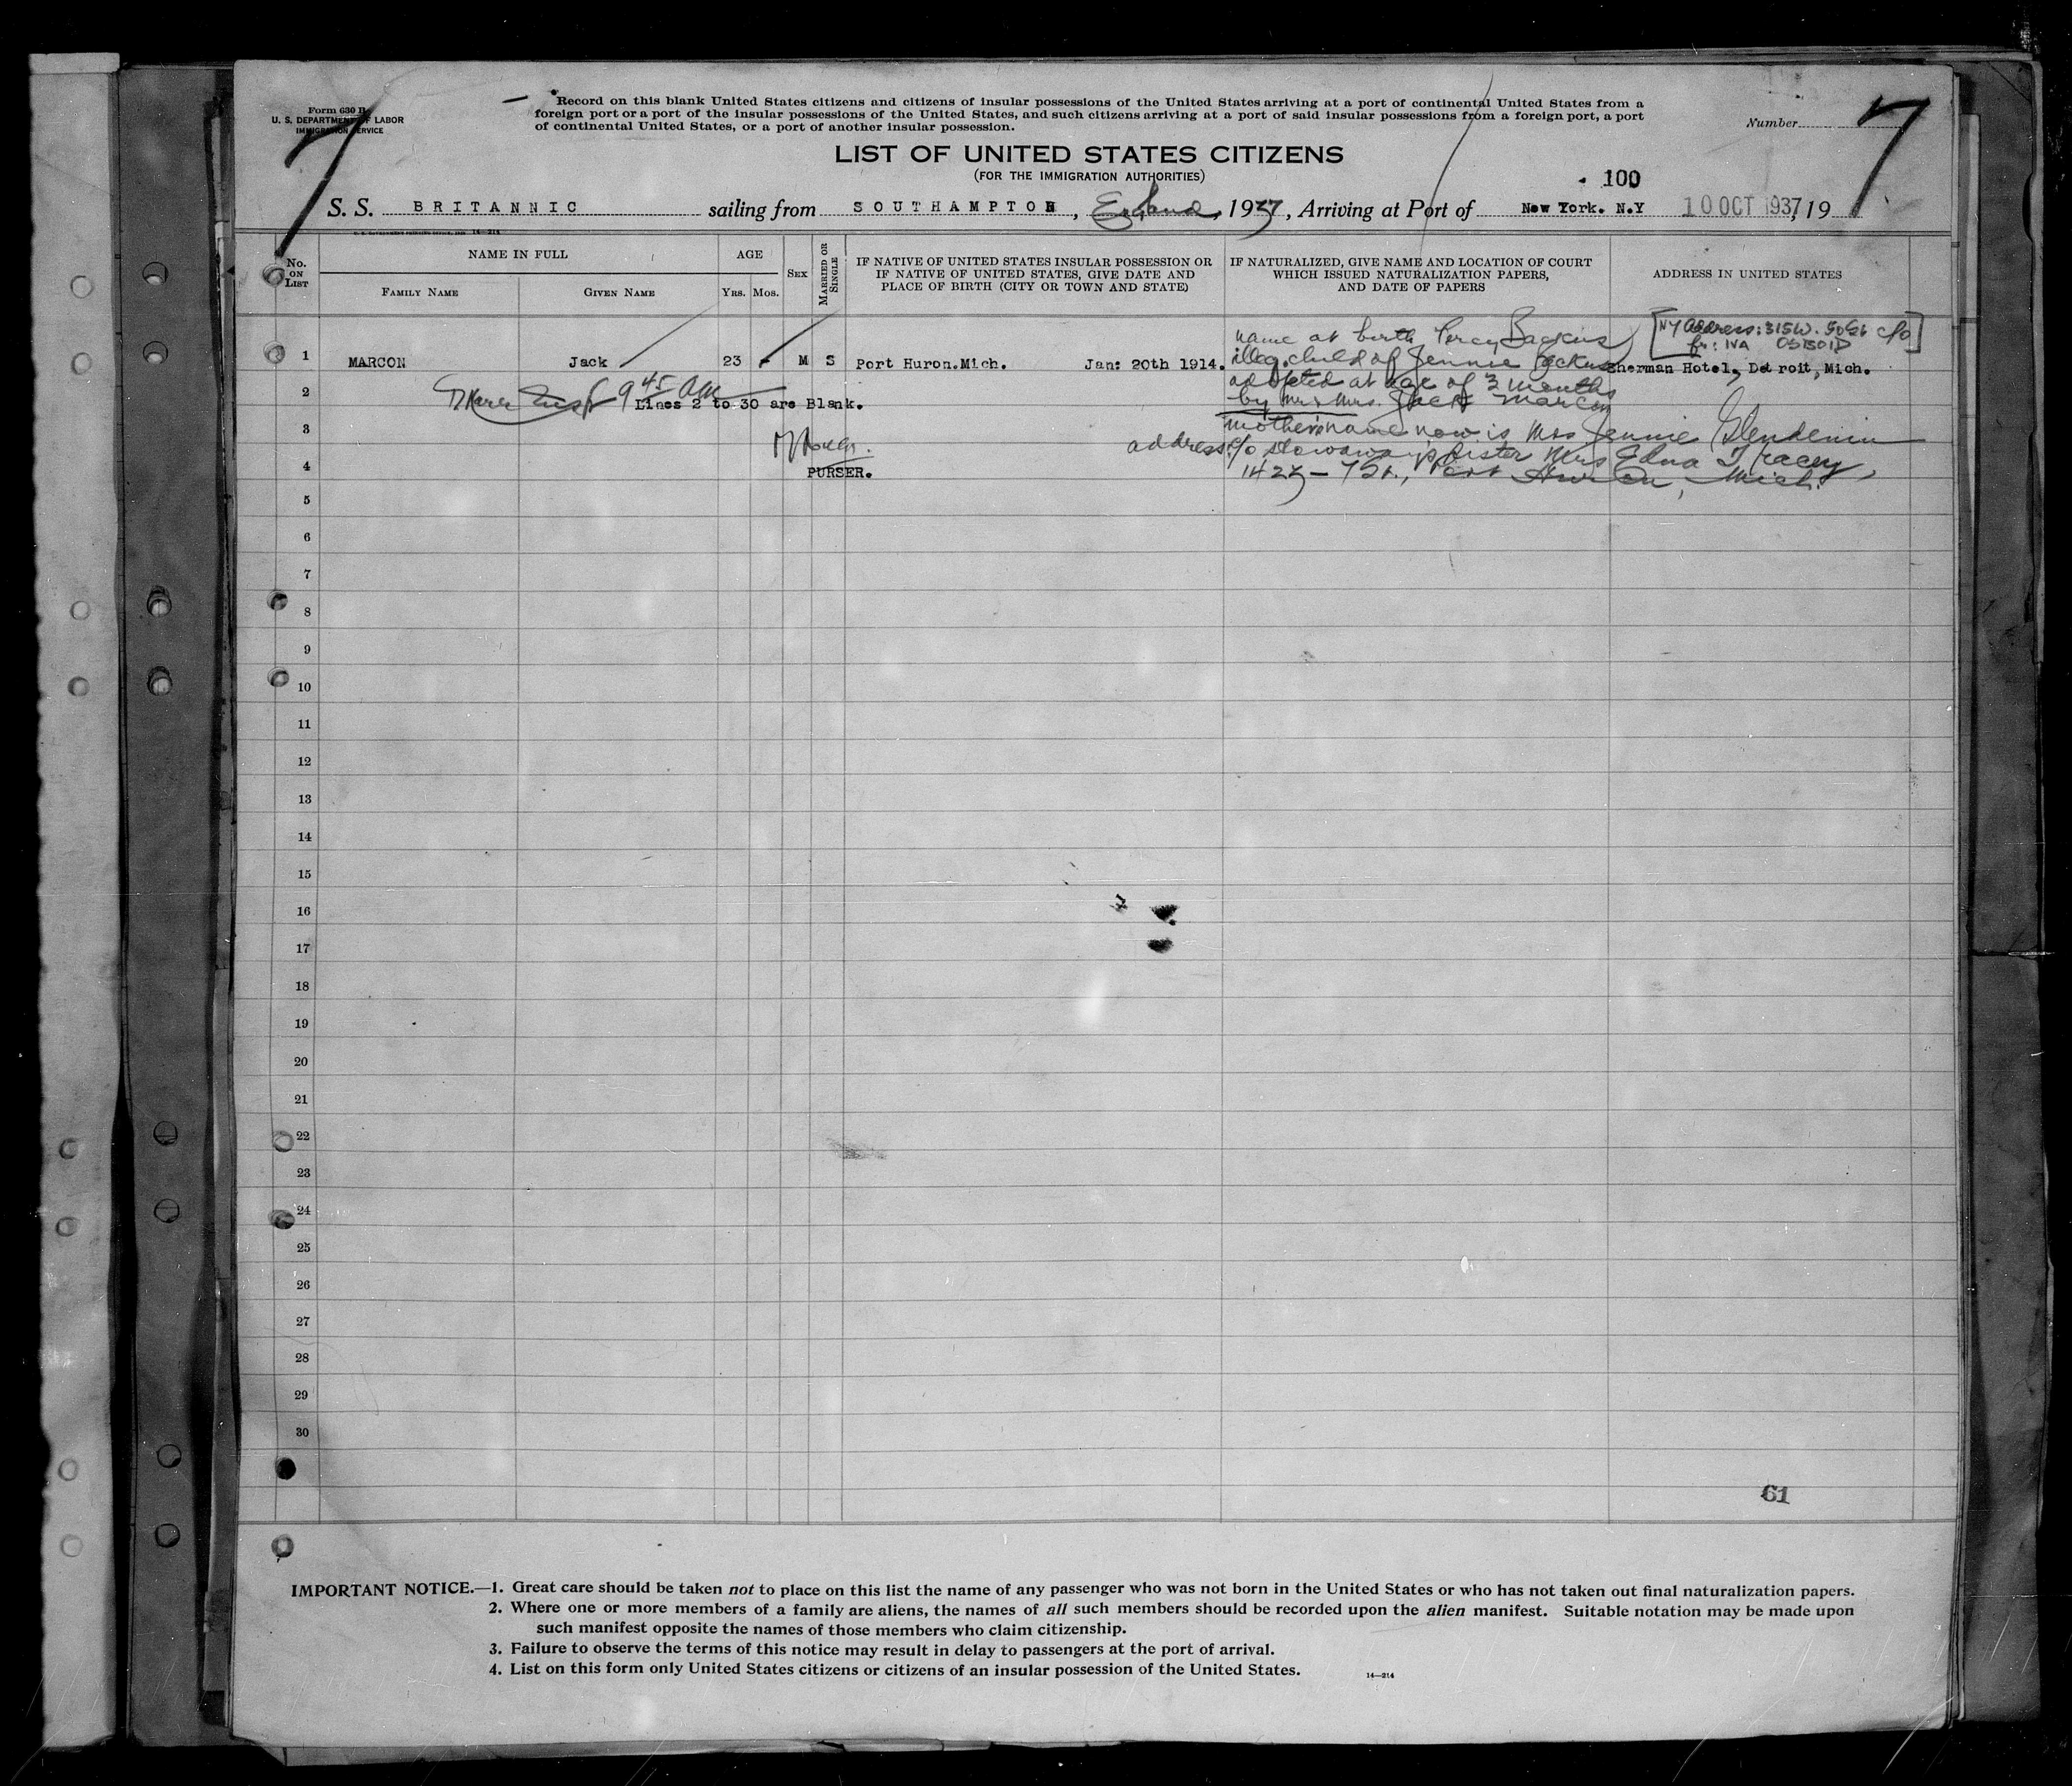 Form 630 B
U. S. DEPARTMENT OF LABOR
IMMIGRATION SERVICE
7
Record on this blank United States citizens and citizens of insular possessions of the United States arriving at a port of continental United States from a
foreign port or a port of the insular possessions of the United States, and such citizens arriving at a port of said insular possessions from a foreign port, a port
of continental United States, or a port of another insular possession.
Number 7
LIST OF UNITED STATES CITIZENS
(FOR THE IMMIGRATION AUTHORITIES)
100
S. S. BRITANNIC sailing from SOUTHAMPTON, England, 1937, Arriving at Port of New York. N.Y 10 OCT 1937, 19
No. ON LIST
NAME IN FULL
FAMILY NAME
GIVEN NAME
AGE
YRS. MOS.
SEX
MARRIED OR SINGLE
IF NATIVE OF UNITED STATES INSULAR POSSESSION OR
IF NATIVE OF UNITED STATES, GIVE DATE AND
PLACE OF BIRTH (CITY OR TOWN AND STATE)
IF NATURALIZED, GIVE NAME AND LOCATION OF COURT
WHICH ISSUED NATURALIZATION PAPERS,
AND DATE OF PAPERS
ADDRESS IN UNITED STATES
[NY address: 315 W. c/o
1 MARCON Jack 23 - M S Port Huron.Mich. Jan: 20th 1914. Sherman Hotel, Detroit, Mich.
name at birth Percy Backus
illeg. child of Jennie Backus
adopted at age of 3 months
by Mr & Mrs. Jack Marcon
mother's name now is Mrs Jennie Glendenin
address: c/o stowaway's sister Mrs Edna Tracey,
- 7 St., Port Huron, Mich.
2 9 45 AM
Lines 2 to 30 are Blank.
3
4 PURSER.
5
6
7
8
9
10
11
12
13
14
15
16
17
18
19
20
21
22
23
24
25
26
27
28
29
30
61
IMPORTANT NOTICE.—1. Great care should be taken not to place on this list the name of any passenger who was not born in the United States or who has not taken out final naturalization papers.
2. Where one or more members of a family are aliens, the names of all such members should be recorded upon the alien manifest. Suitable notation may be made upon
such manifest opposite the names of those members who claim citizenship.
3. Failure to observe the terms of this notice may result in delay to passengers at the port of arrival.
4. List on this form only United States citizens or citizens of an insular possession of the United States.
14—214